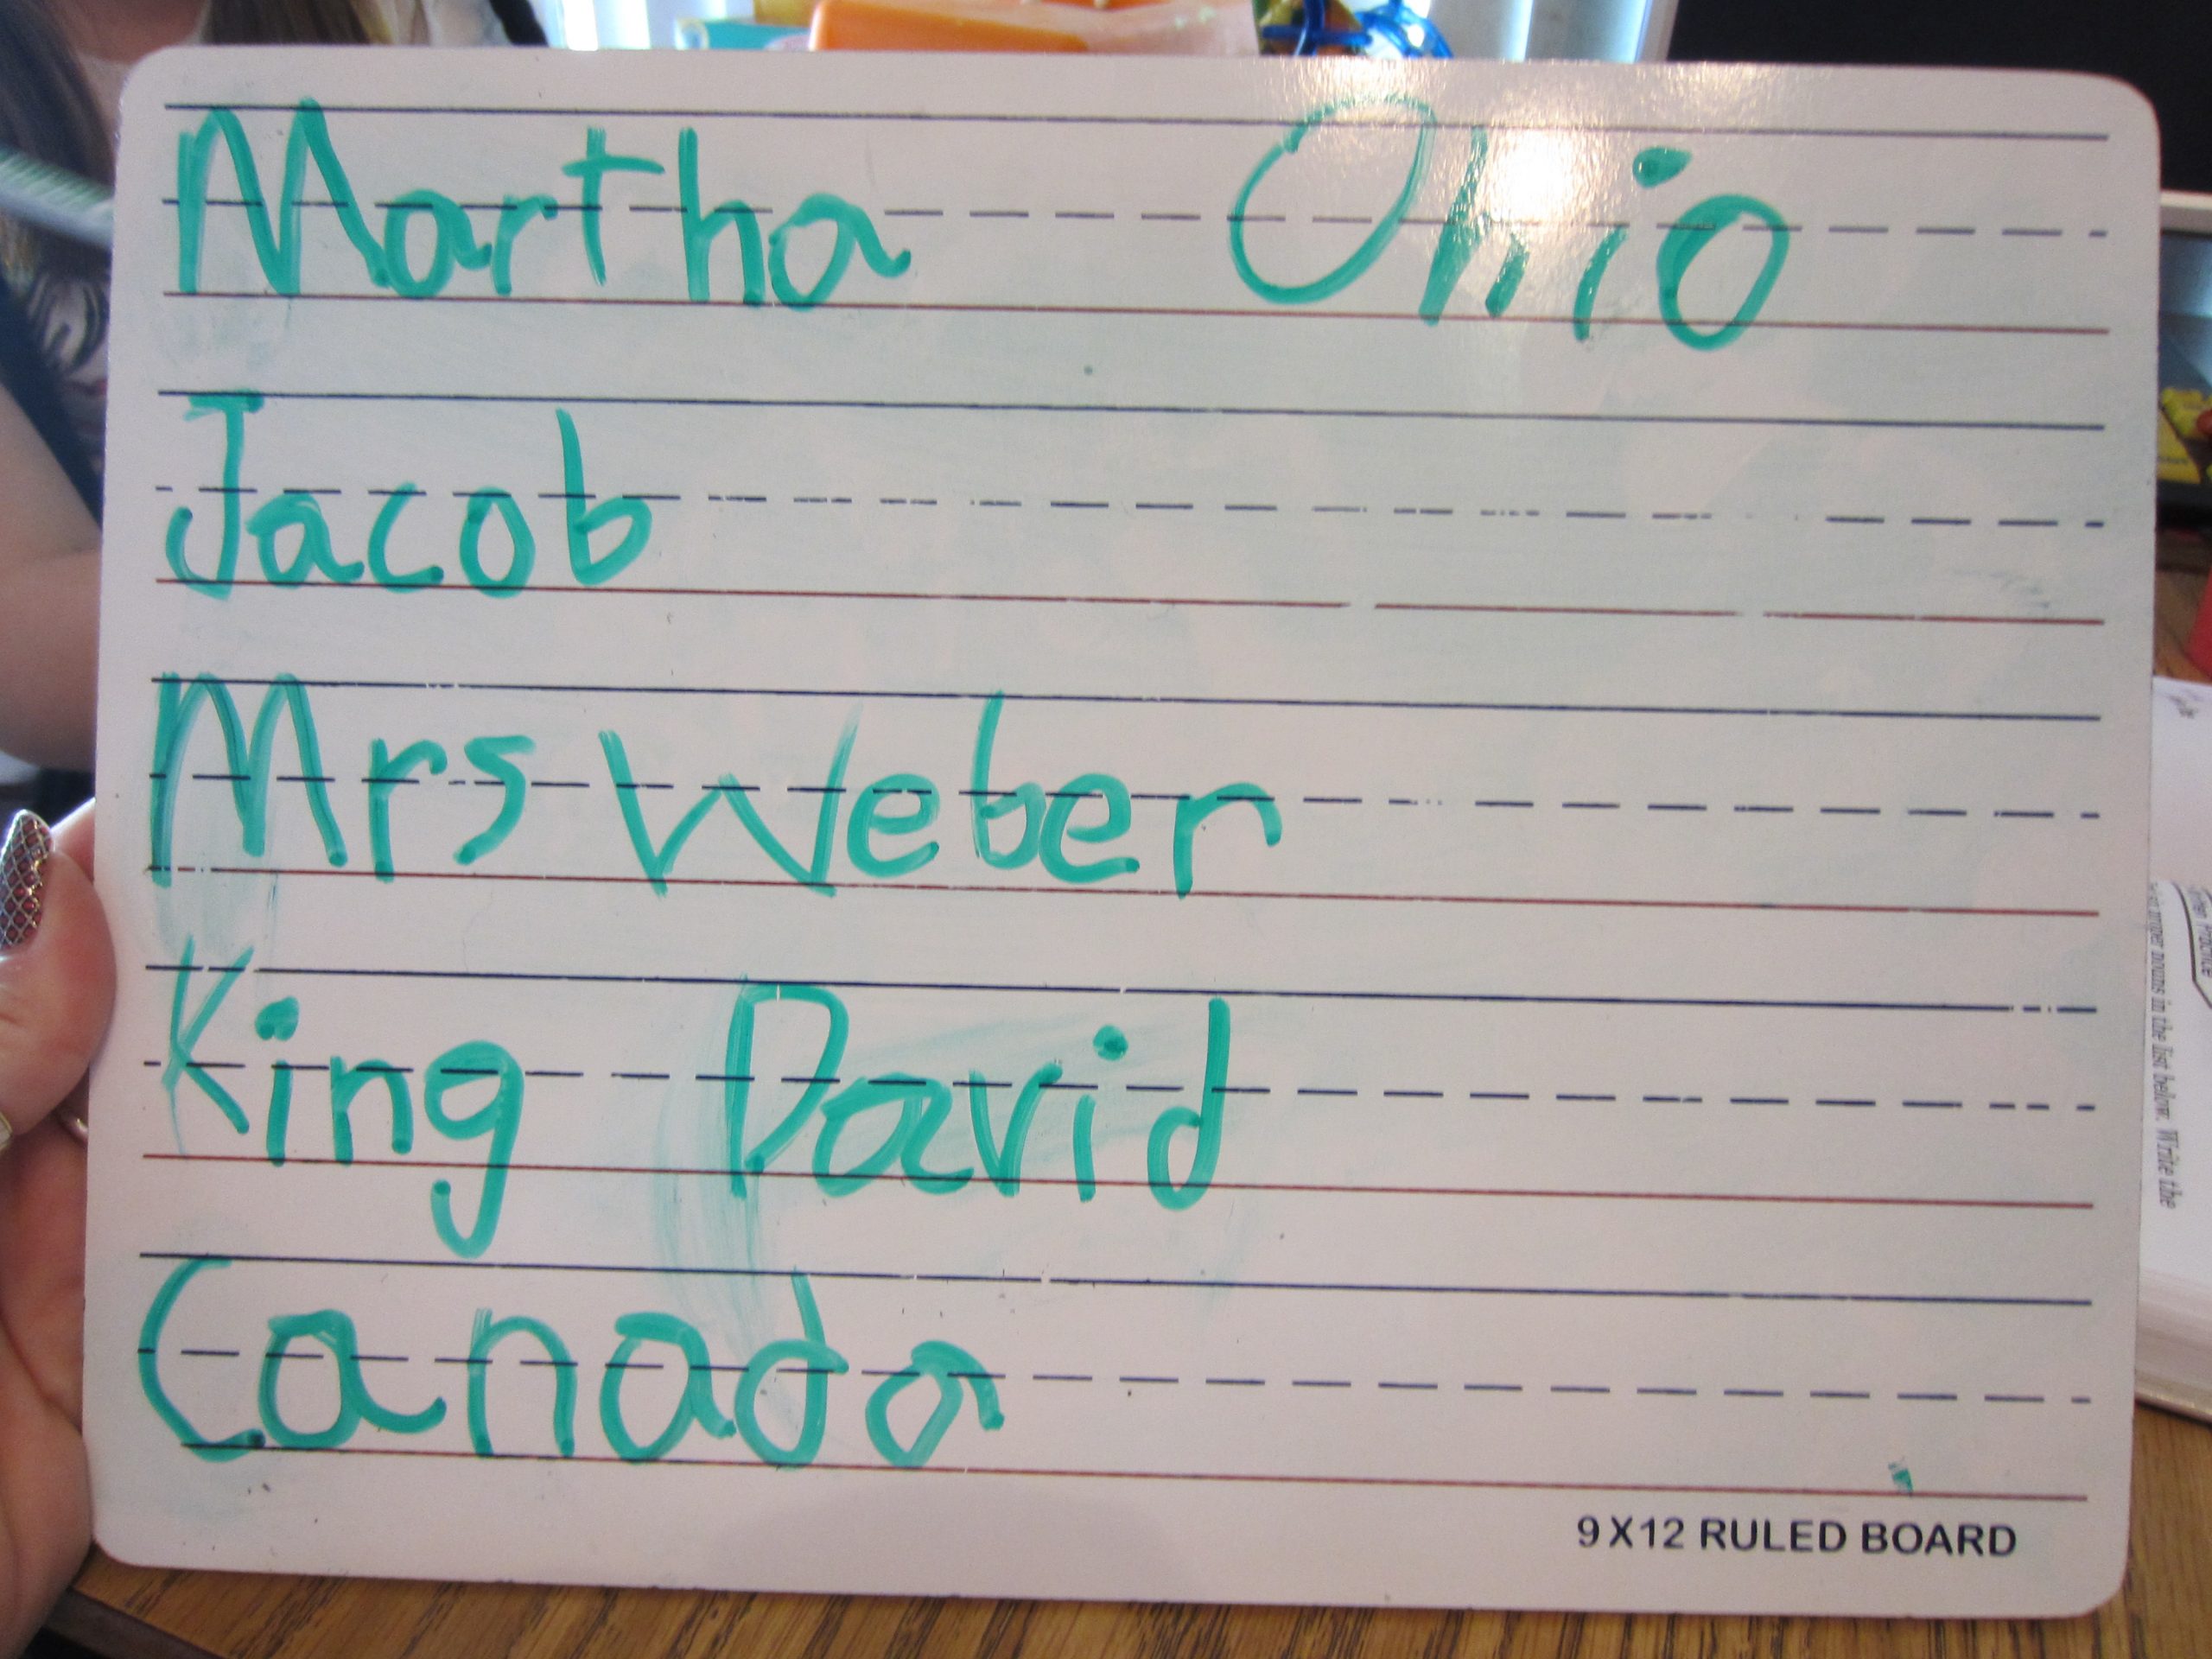 Martha Ohio
Jacob
Mrs Weber
King David
Canada
9 X 12 RULED BOARD
proper nouns in the list below. Write the